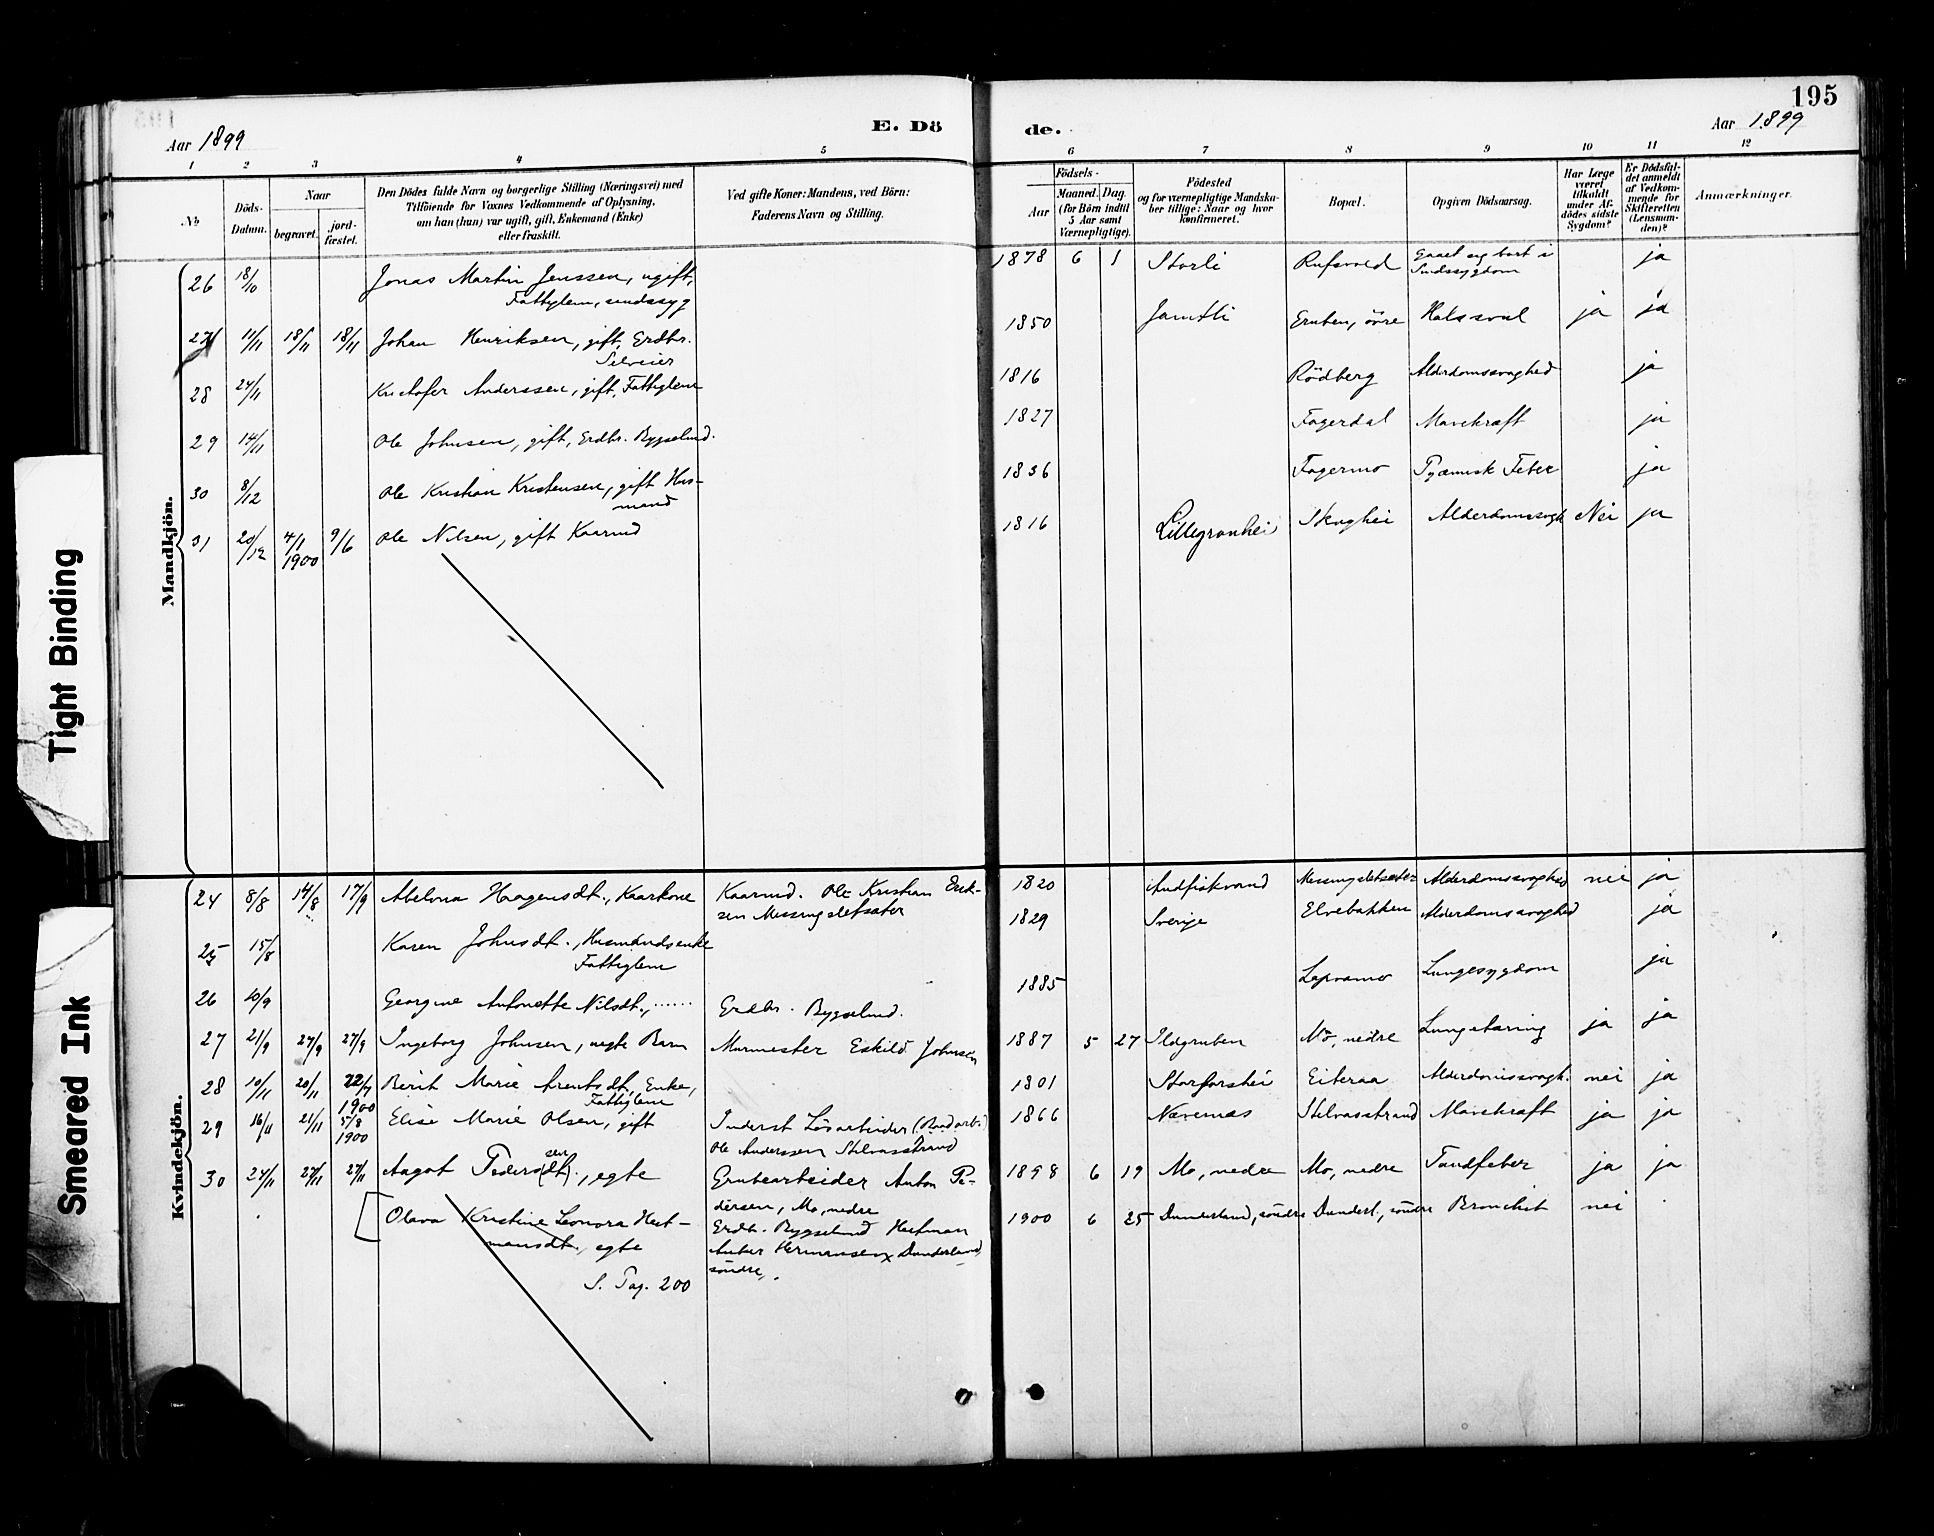 195
Aar 1899
E. Dö
de.
Aar 1899
1 2 3 4 5
6 7 8 9 10 11 12
№
Döds-
Datum.
Naar
begravet.
jord-
fæstet.
Den Dödes fulde Navn og borgerlige Stilling (Næringsvei) med
Tilföiende for Voxnes Vedkommende af Oplysning,
om han (hun) var ugift, gift, Enkemand (Enke)
eller fraskilt.
Ved gifte Koner: Mandens, ved Börn:
Faderens Navn og Stilling.
Födsels-
Aar
Maaned.
Dag.
(for Börn indtil
5 Aar samt
Værnepligtige).
Födested
og for værnepligtige Mandska-
ber tillige: Naar og hvor
konfirmeret.
Bopæl.
Opgiven Dödsaarsag.
Har Læge
været
tilkaldt
under Af-
dödes sidste
Sygdom?
Er Dödsfal-
det anmeldt
af Vedkom-
mende for
Skifteretten
(Lensman-
den)?
Anmærkninger.
Mandkjön.
26 18/10 Jonas Martin Jenssen, ugift, 1878 6 1 Storli Rufsvold Gaaet sig bort i ja
Fattiglem, sindssyg Sindssygdom
27 11/11 18/11 18/11 Johan Henriksen, gift, Erdbr. 1850 Jamtli Enuten, övre Halssvul ja ja
Selveier
28 24/11 Kristofer Anderssen, gift, Fattiglem 1816 Rödberg Alderdomssvaghed ja
29 14/11 Ole Johnsen, gift, Erdbr. Bygselmd. 1827 Fagerdal Mavekræft ja
30 8/12 Ole Kristian Kristensen, gift Hus- 1836 Fagermo Pyæmisk Feber ja
mand
31 20/12 4/1 9/6 Ole Nilsen, gift Kaarmd 1816 Lillegronhei Skoghei Alderdomssvagh. Nei ja
1900
Kvindekjön.
24 8/8 14/8 17/9 Abelona Haagensdt., Kaarkone Kaarmd. Ole Kristian Erik- 1820 Andfiskvand Messingsletsæter Alderdomssvaghed nei ja
sen Messingsletsæter
25 15/8 Karen Johnsdt., Husmandsenke 1829 Sverige Elvebakken Alderdomssvaghed ja
Fattiglem
26 10/9 Georgine Antonette Nilsdt., ...... Erdbr. Bygselmd. 1885 Lapramo Lungesygdom ja
27 21/9 27/9 27/9 Ingeborg Johnsen, uegte Barn Murmester Eskild Johnsen 1887 5 27 Ildgruben Mo, nedre Lungetæring ja ja
28 10/11 20/11 22/7 Berit Marie Arentsdt, Enke, 1801 Storforshei Eiteraa Alderdomssvagh. nei ja
1900 Fattiglem
29 16/11 21/11 5/8 Elise Marie Olsen, gift Inderst Lösarbeider 1866 Nævernes Stilvasstrand Mavekræft ja ja
1900 Ole Anderssen Stilvasstrand
30 24/11 27/11 27/11 Aagot Pedersdt. (sen), egte Grubearbeider Anton Pe- 1898 6 19 Mo, nedre Mo, nedre Tandfeber ja ja
dersen, Mo, nedre
[ Olava Kristine Leonora Hart- Erdb. Bygselmd Hartman 1900 6 25 Dunderland, söndre Dunderl., söndre Bronchit nei
mansdt., egte Hermansen, Dunderland
söndre,
S. Pag. 200
Tight Binding
Smeared Ink